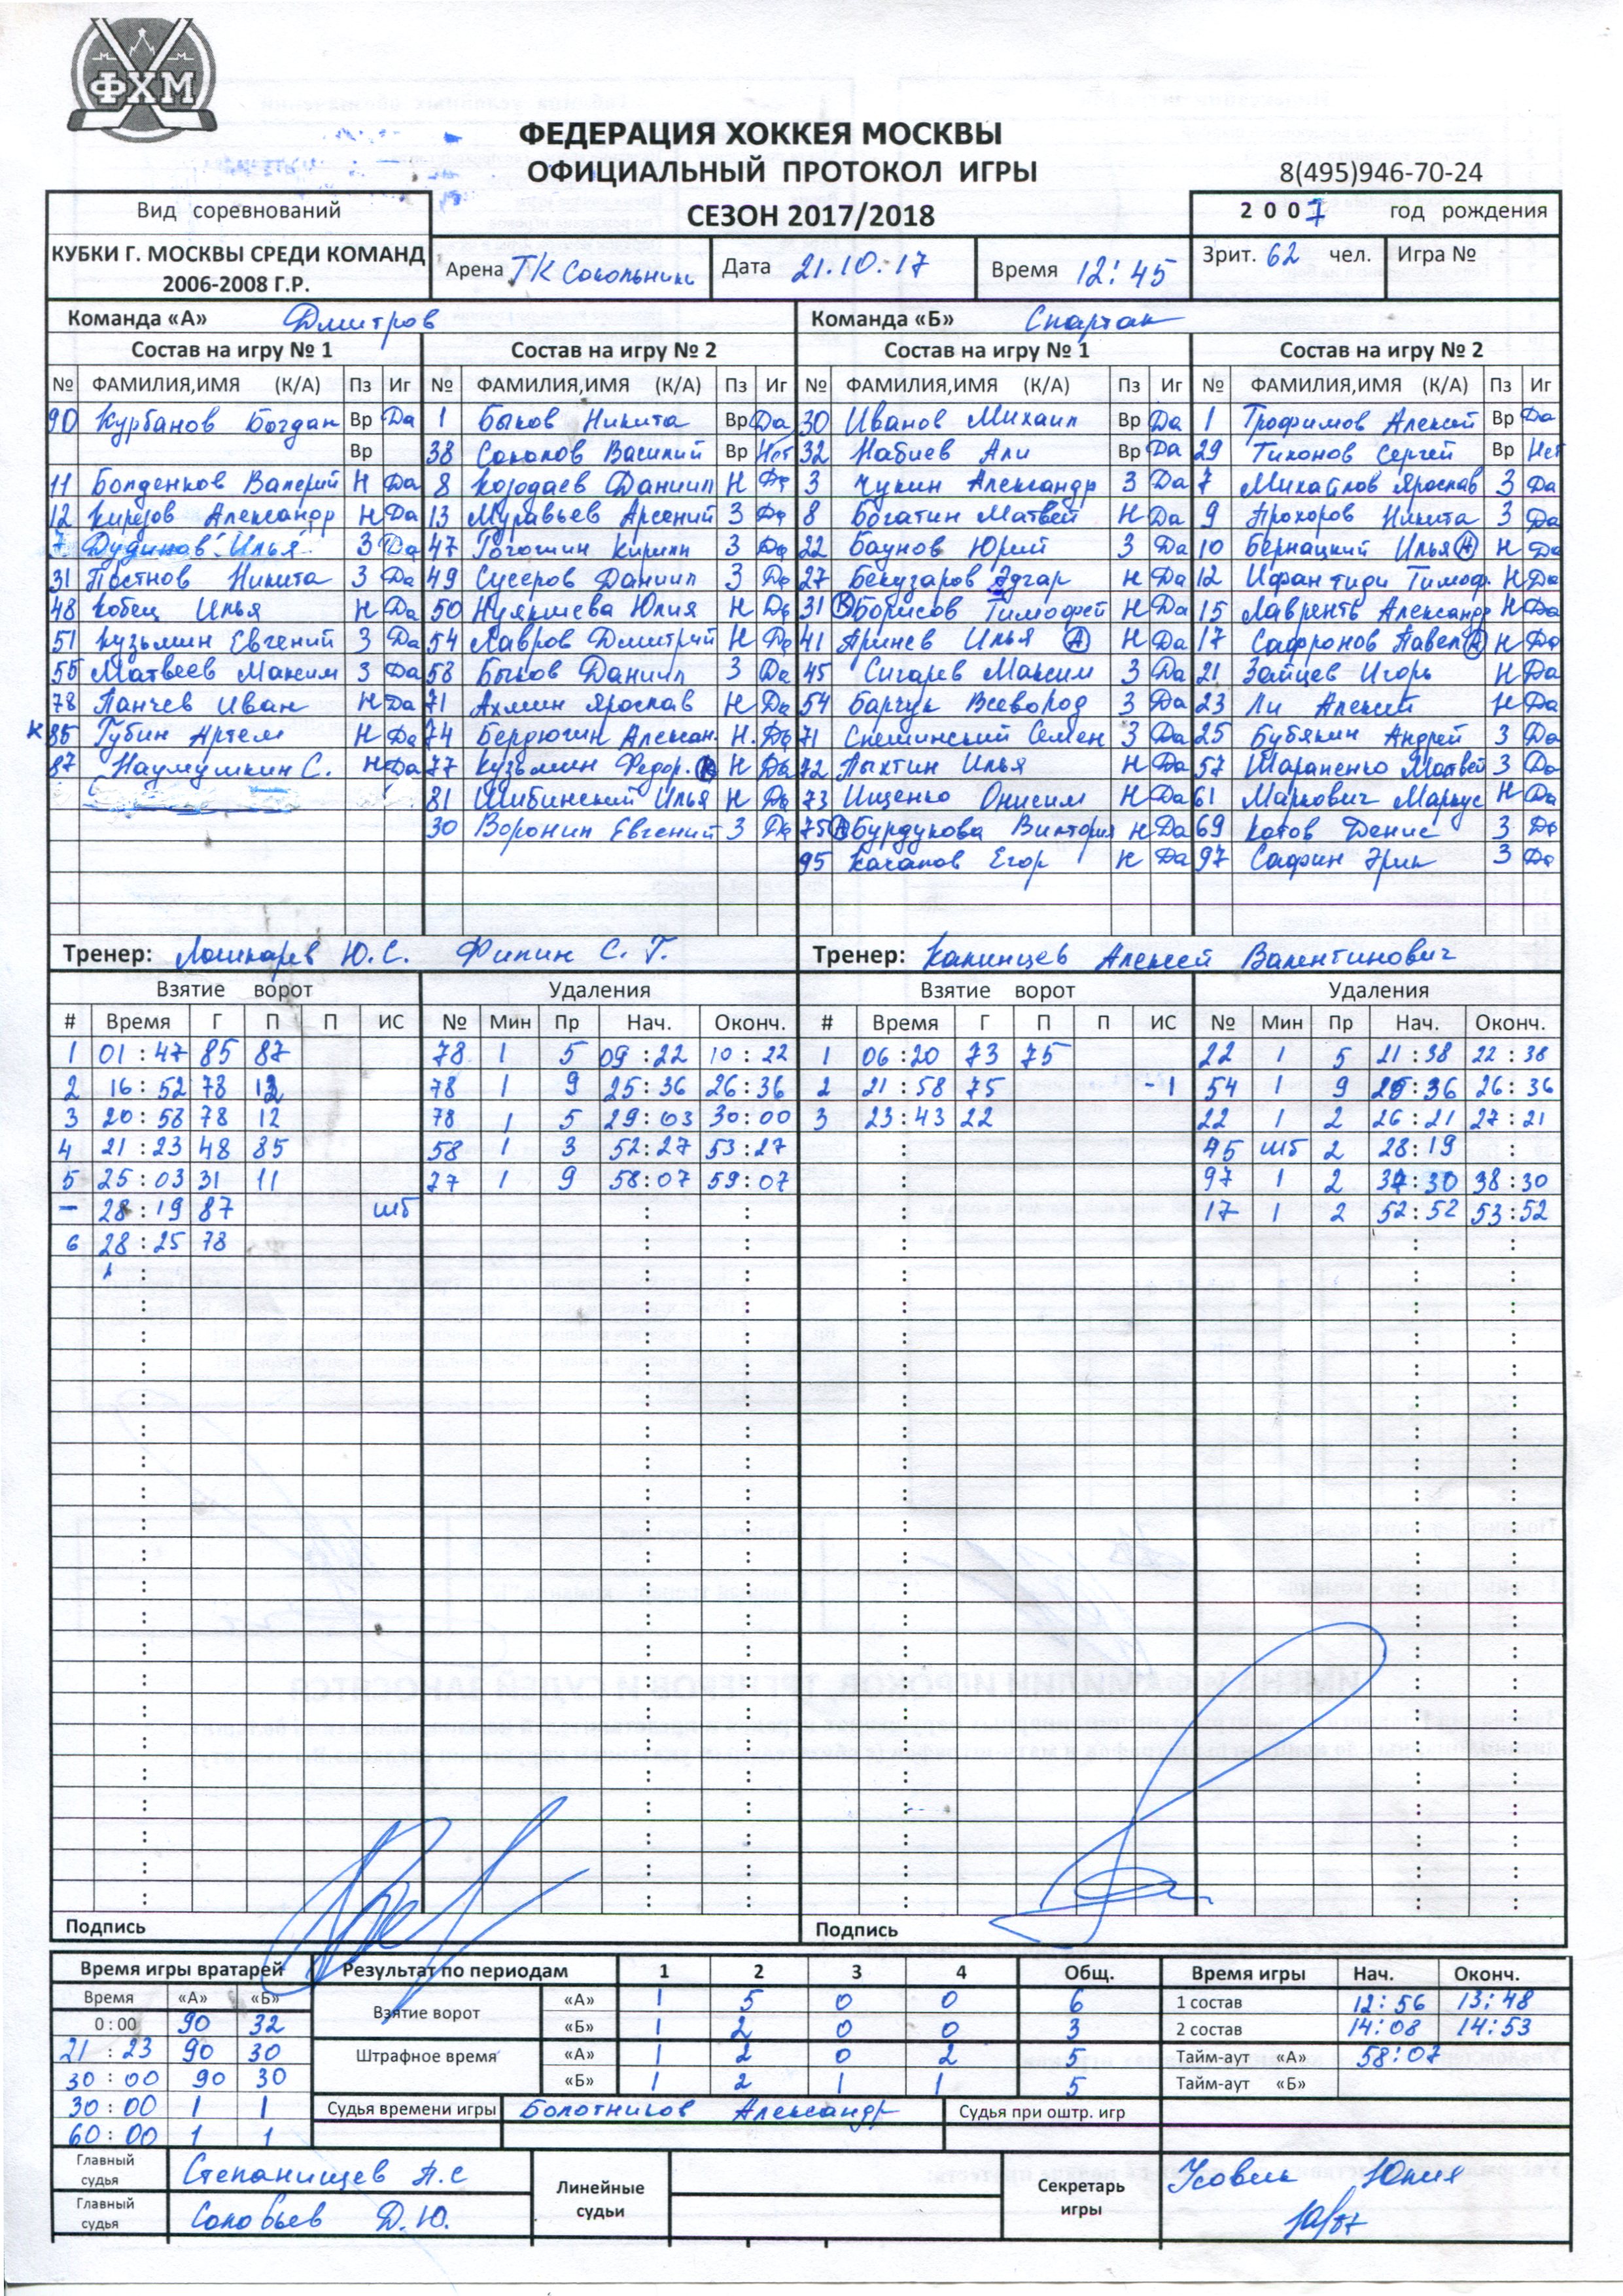 ФХМ
ФЕДЕРАЦИЯ ХОККЕЯ МОСКВЫ
ОФИЦИАЛЬНЫЙ ПРОТОКОЛ ИГРЫ 8(495)946-70-24
Вид соревнований СЕЗОН 2017/2018 2007 год рождения
КУБКИ Г. МОСКВЫ СРЕДИ КОМАНД
2006-2008 Г.Р.
Арена ТК Сокольники Дата 21.10.17 Время 12:45 Зрит. 62 чел. Игра №
Команда «А» Дмитров Команда «Б» Спартак
Состав на игру № 1 Состав на игру № 2 Состав на игру № 1 Состав на игру № 2
№ ФАМИЛИЯ,ИМЯ (К/А) Пз Иг № ФАМИЛИЯ,ИМЯ (К/А) Пз Иг № ФАМИЛИЯ,ИМЯ (К/А) Пз Иг № ФАМИЛИЯ,ИМЯ (К/А) Пз Иг
90 Курбанов Богдан Вр Да 1 Быков Никита Вр Да 30 Иванов Михаил Вр Да 1 Трофимов Алексей Вр Да
Вр 38 Соколов Василий Вр Нет 32 Набиев Али Вр Да 29 Тихонов Сергей Вр Нет
11 Болденков Валерий Н Да 8 Кородаев Даниил Н Да 3 Чукин Александр З Да 7 Михайлов Ярослав З Да
12 Александр Н Да 13 Муравьев Арсений З Да 8 Богатин Матвей Н Да 9 Прохоров Никита З Да
7 Дудинов Илья З Да 47 Гогошин Кирилл З Да 22 Баунов Юрий З Да 10 Бернацкий Илья Н Да
31 Постнов Никита З Да 49 Сусеров Даниил З Да 27 Бекузаров Эдгар Н Да 12 Ифантиди Тимоф. Н Да
48 Кобец Илья Н Да 50 Юлия Н Да 31 Борисов Тимофей Н Да 15 Лавренть Александр Н Да
51 Кузьмин Евгений З Да 54 Лавров Дмитрий Н Да 41 Аринев Илья А Н Да 17 Сафронов Павел Н Да
55 Матвеев Максим З Да 58 Быков Даниил З Да 45 Сигарев Максим З Да 21 Зайцев Игорь Н Да
78 Панчев Иван Н Да 71 Ахмин Ярослав Н Да 54 Барчук Всеволод З Да 23 Ли Алексей Н Да
К 85 Губин Артем Н Да 74 Бердюгин Алексан. Н. Да 71 Спешинский Семен З Да 25 Бубякин Андрей З Да
87 Наумушкин С. Н Да 77 Кузьмин Федор. Н Да 72 Лыктин Илья Н Да 57 Шарапенко Матвей З Да
81 Шибинский Илья Н Да 73 Ищенко Онисим Н Да 61 Маркович Маркус Н Да
30 Воронин Евгений З Да 75 Бурдукова Виктория Н Да 69 Котов Денис З Да
95 Касапов Егор Н Да 97 Сафин Эрик З Да
Тренер: Лошкарев Ю.С. Филин С.Г. Тренер: Калинцев Алексей Валентинович
Взятие ворот Удаления Взятие ворот Удаления
# Время Г П П ИС № Мин Пр Нач. Оконч. # Время Г П П ИС № Мин Пр Нач. Оконч.
1 01:47 85 87 78 1 5 09:22 10:22 1 06:20 73 75 22 1 5 21:38 22:38
2 16:52 78 12 78 1 9 25:36 26:36 2 21:58 75 -1 54 1 9 25:36 26:36
3 20:58 78 12 78 1 5 29:03 30:00 3 23:43 22 22 1 2 26:21 27:21
4 21:23 48 85 58 1 3 52:27 53:27 45 шб 2 28:19
5 25:03 31 11 77 1 9 58:07 59:07 97 1 2 37:30 38:30
- 28:19 87 шб 17 1 2 52:52 53:52
6 28:25 78
Подпись Подпись
Время игры вратарей Результат по периодам 1 2 3 4 Общ. Время игры Нач. Оконч.
Время «А» «Б» Взятие ворот «А» 1 5 0 0 6 1 состав 12:56 13:48
0:00 90 32 «Б» 1 2 0 0 3 2 состав 14:08 14:53
21:23 90 30 Штрафное время «А» 1 2 0 2 5 Тайм-аут «А» 58:07
30:00 90 30 «Б» 1 2 1 1 5 Тайм-аут «Б»
30:00 1 1 Судья времени игры Болотников Александр Судья при оштр. игр
60:00 1 1
Главный судья Степанищев А.С Линейные судьи Секретарь игры Усовик Юлия
Главный судья Соловьев Д.Ю.